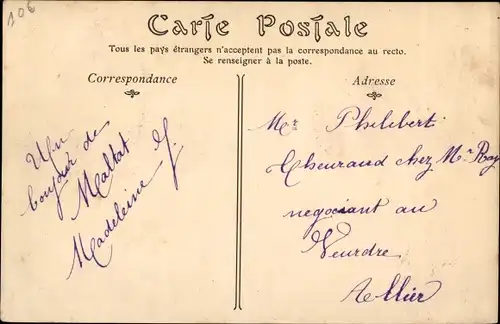 106
Carte Postale
Tous les pays étrangers n'acceptent pas la correspondance au recto.
Se renseigner à la poste.
Correspondance
Un
bonjour de
Maltat
Madeleine J.
Adresse
Mr Philibert
Cheuraud chez Mr Ray
negociant au
Veurdre
Allier